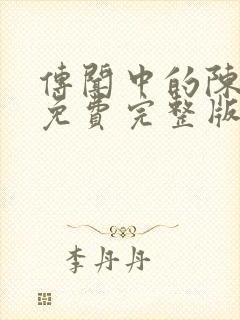 傳聞中的陳
免費完整版
李丹丹